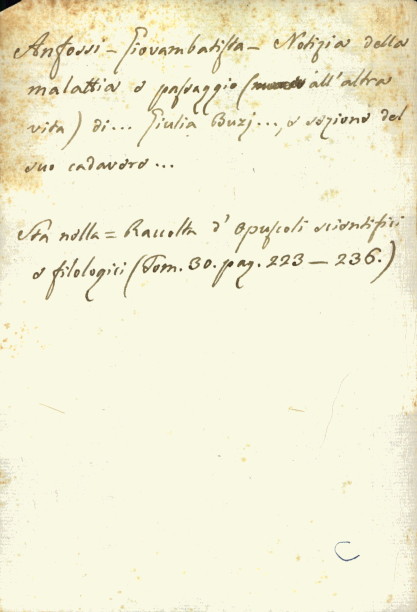 Anfossi - Giovambatista - Notizia della
malattia e passaggio ( all'altra
vita) di... Giulia Buzj..., e sezione del
suo cadavere...
Sta nella = Raccolta d'Opuscoli scientifici
e filologici (Tom. 30. pag. 223 - 236.)
C